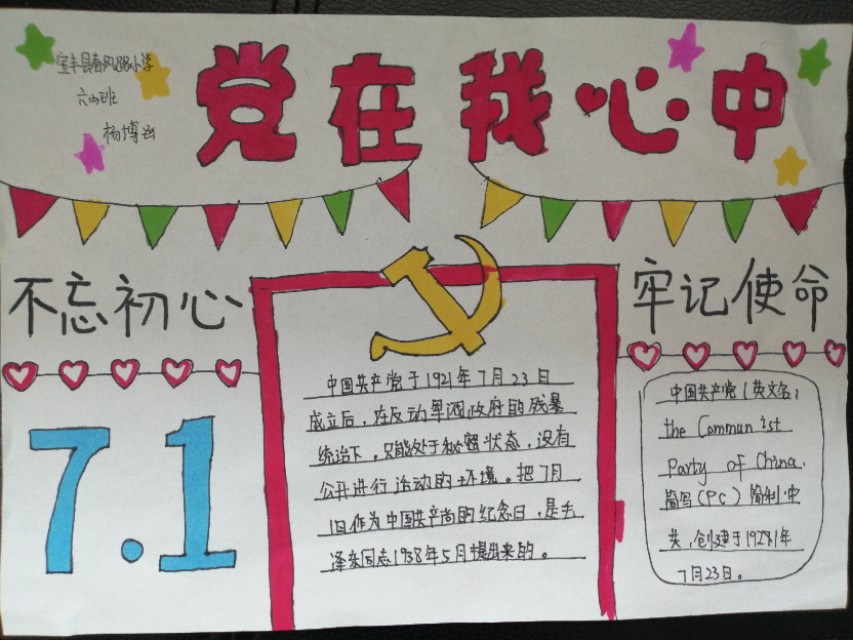 党在我心中
宝丰县春风路小学
六四班
杨博涵
不忘初心
牢记使命
7.1
中国共产党于1921年7月23日
成立后，在反动军阀政府的残暴
统治下，只能处于秘密状态，没有
公开进行活动的环境。把7月
1日作为中国共产党的纪念日，是毛
泽东同志1938年5月提出来的。
中国共产党（英文名）
the Communist
Party of China.
简写（PC）简称中
共，创建于1921年
7月23日。